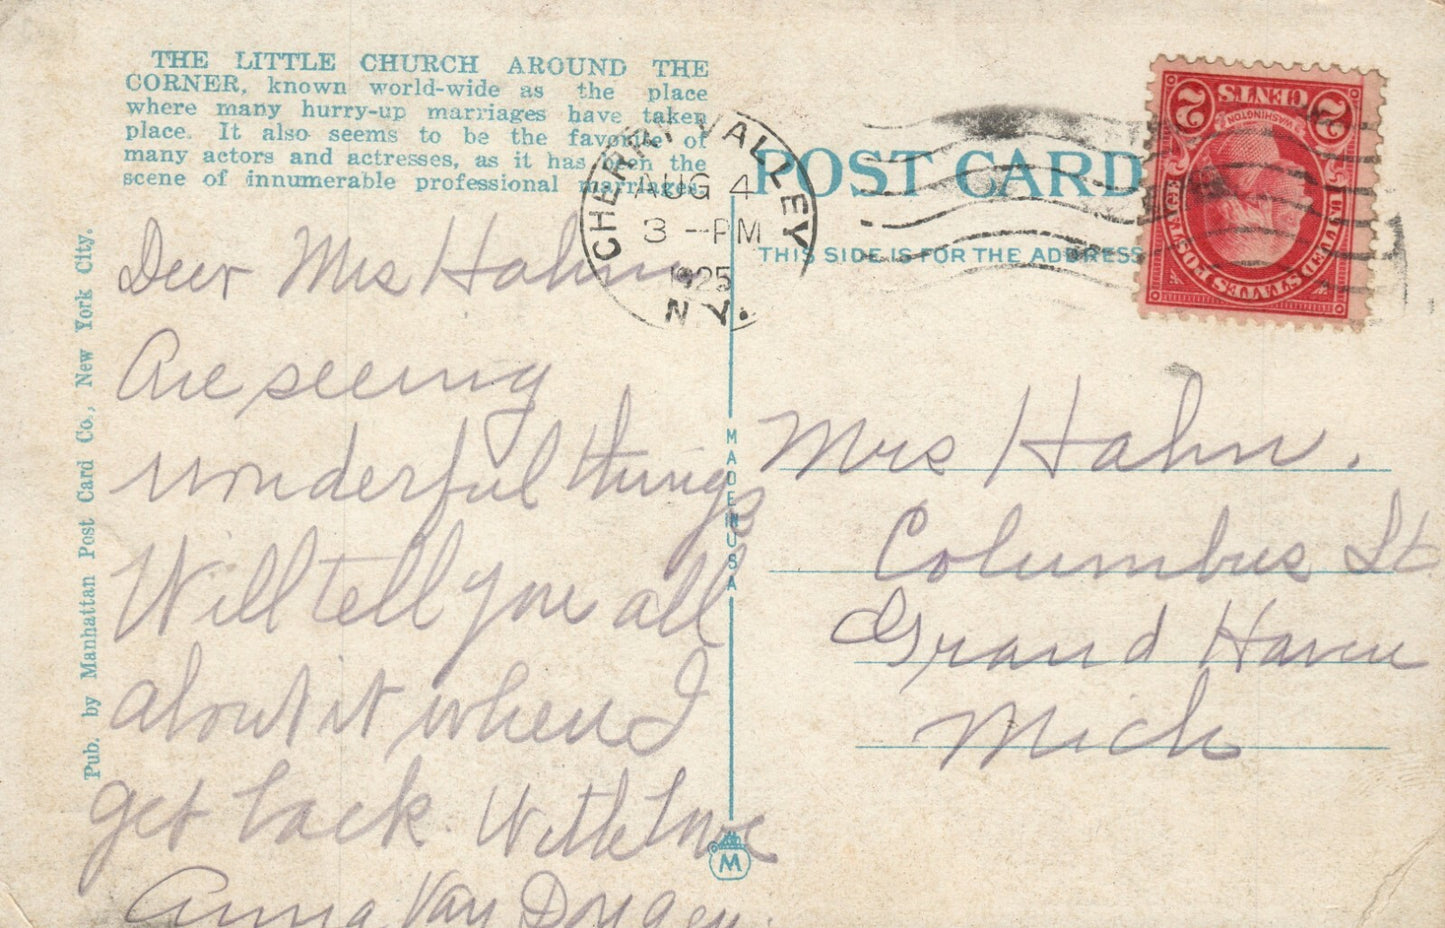 THE LITTLE CHURCH AROUND THE
CORNER, known world-wide as the place
where many hurry-up marriages have taken
place. It also seems to be the favorite of
many actors and actresses, as it has been the
scene of innumerable professional marriages.
Pub. by Manhattan Post Card Co., New York City.
CHERRY VALLEY
AUG 4
3 - PM
1925
N.Y.
POST CARD
THIS SIDE IS FOR THE ADDRESS
2 CENTS 2
WASHINGTON
UNITED STATES POSTAGE
Dear Mrs Hahn
Are seeing
wonderful things
Will tell you all
about it when I
get back. With love
Anna Van
MADE IN USA
M
Mrs Hahn.
Columbus St.
Grand Haven
Mich